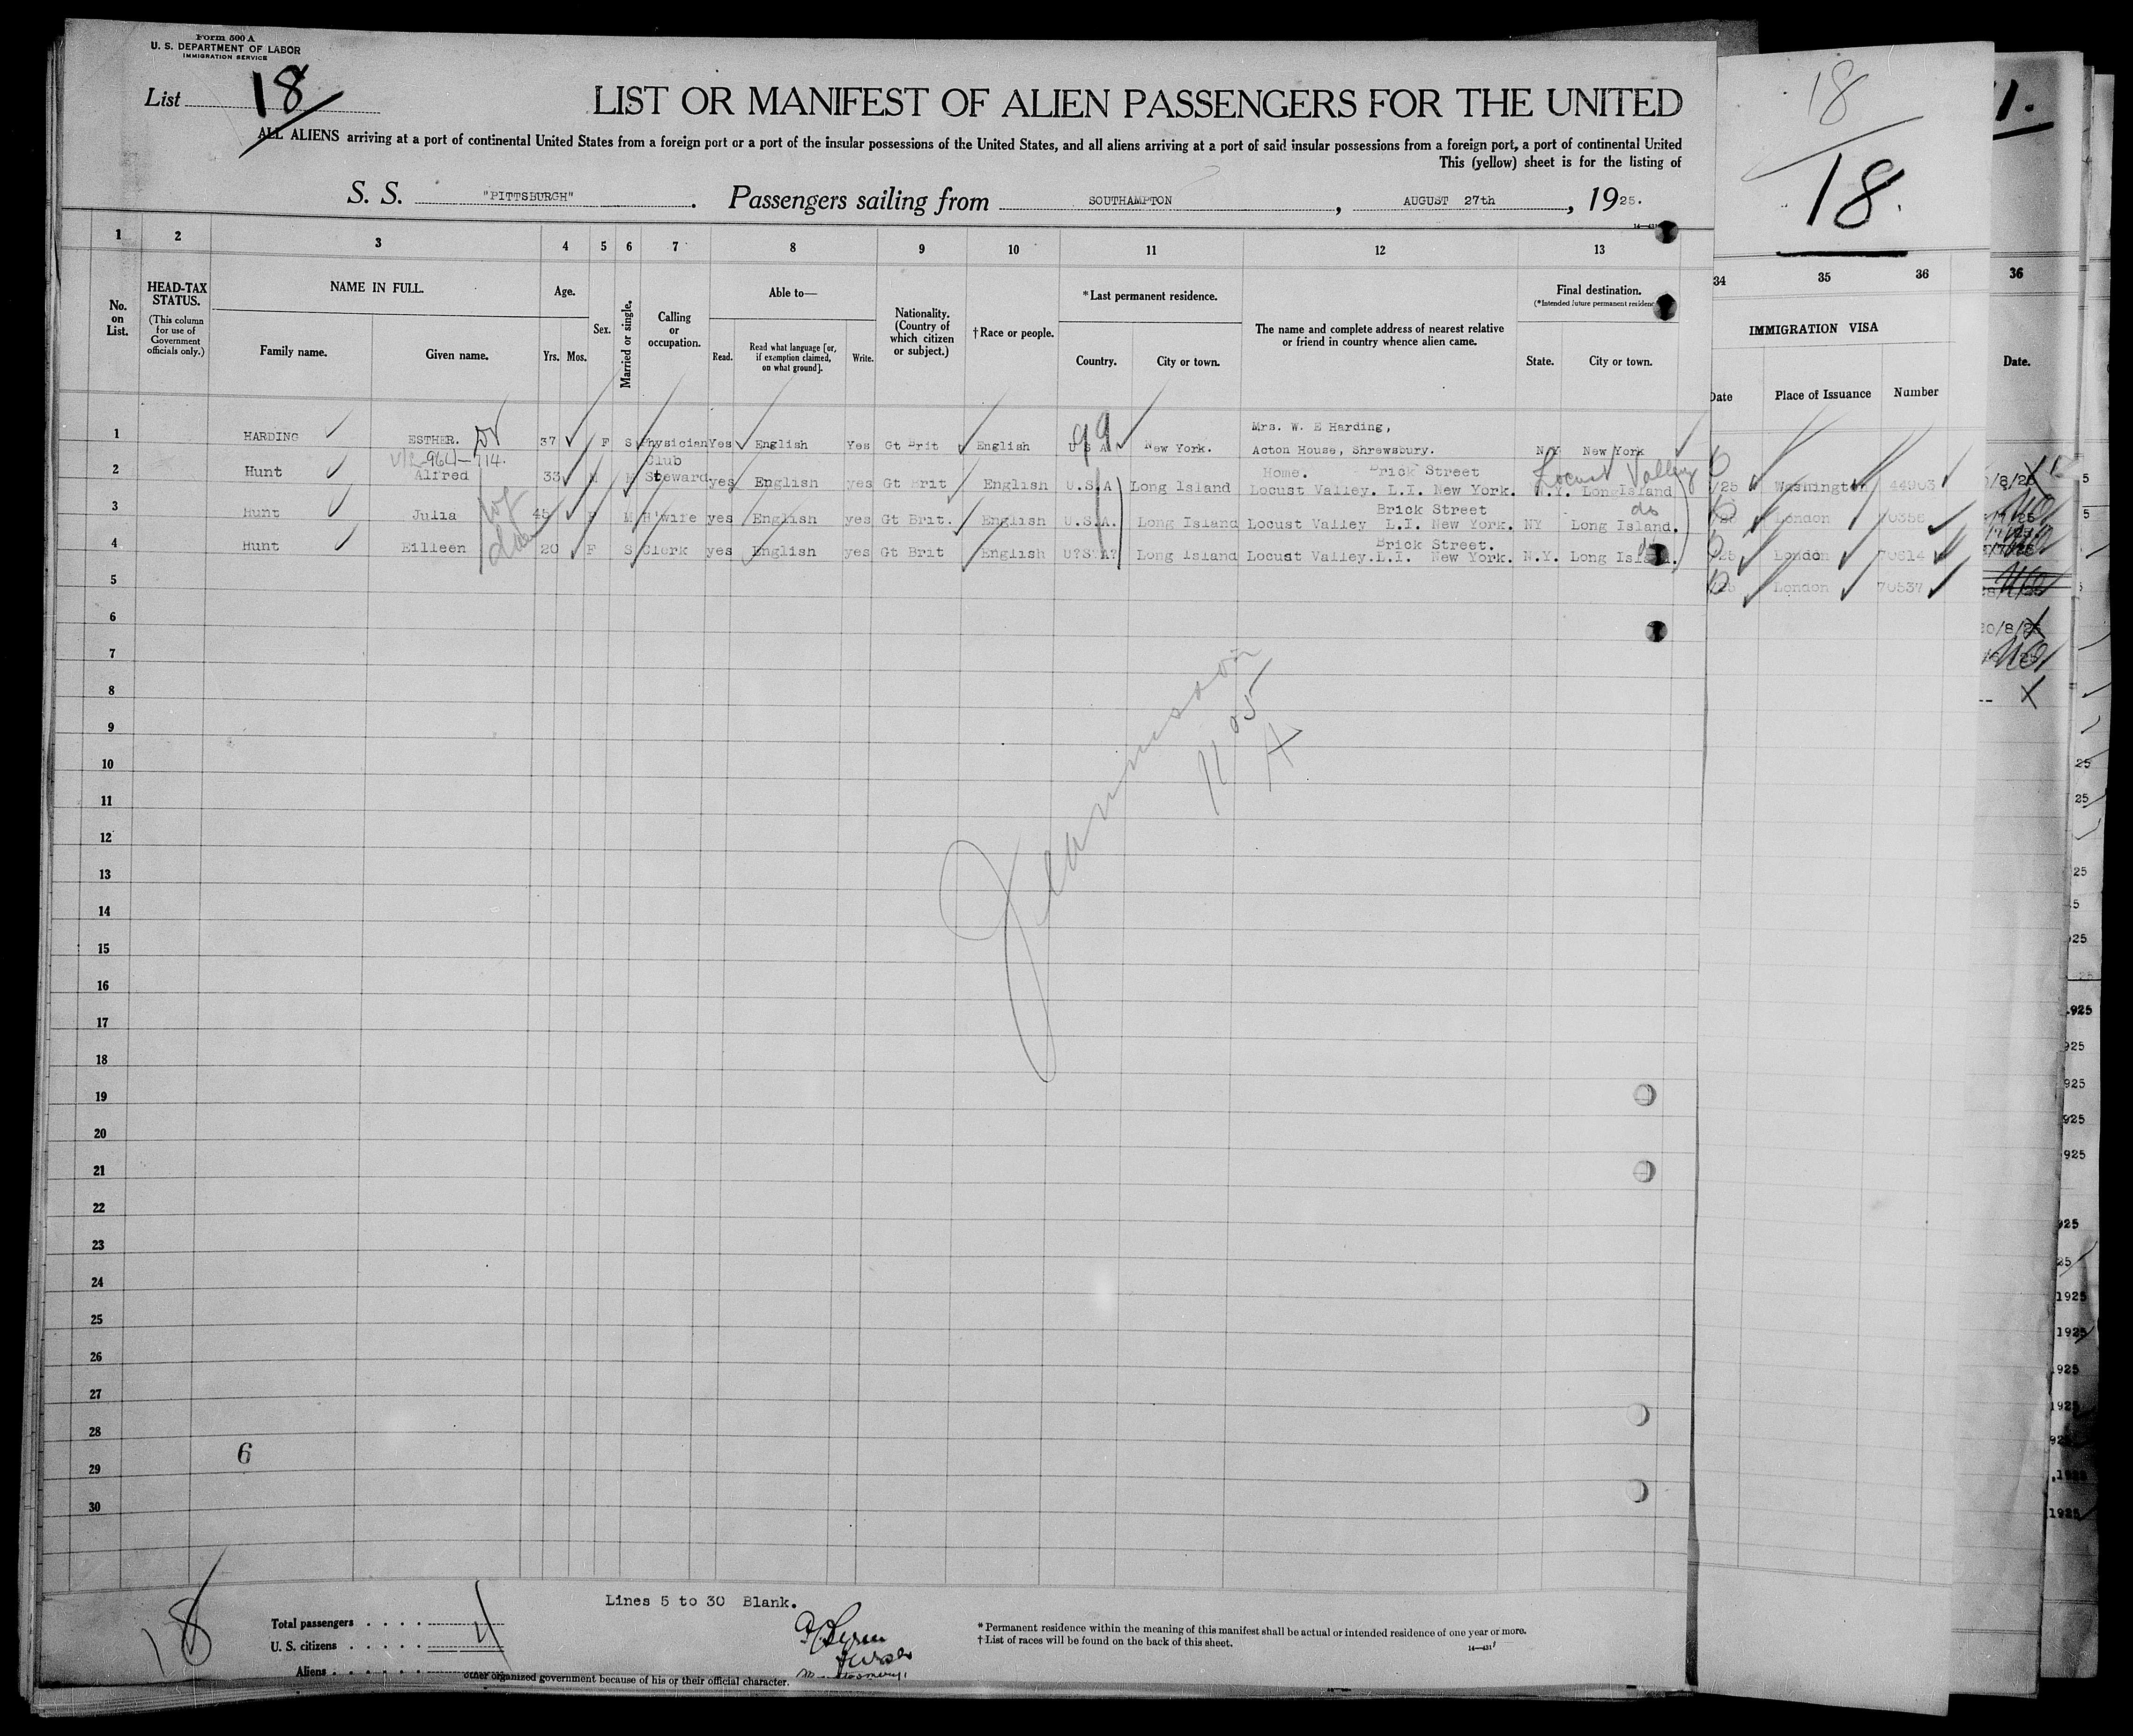 Form 500 A
U. S. DEPARTMENT OF LABOR
IMMIGRATION SERVICE
List 18
LIST OR MANIFEST OF ALIEN PASSENGERS FOR THE UNITED
ALL ALIENS arriving at a port of continental United States from a foreign port or a port of the insular possessions of the United States, and all aliens arriving at a port of said insular possessions from a foreign port, a port of continental United
This (yellow) sheet is for the listing of
S. S. "PITTSBURGH". Passengers sailing from SOUTHAMPTON, AUGUST 27th, 1925.
1 2 3 4 5 6 7 8 9 10 11 12 13
No. on List.
HEAD-TAX STATUS.
(This column for use of Government officials only.)
NAME IN FULL.
Family name. Given name.
Age.
Yrs. Mos.
Sex.
Married or single.
Calling or occupation.
Able to—
Read. Read what language [or, if exemption claimed, on what ground]. Write.
Nationality. (Country of which citizen or subject.)
†Race or people.
*Last permanent residence.
Country. City or town.
The name and complete address of nearest relative or friend in country whence alien came.
Final destination.
(*Intended future permanent residence
State. City or town.
Mrs. W. E Harding,
1 HARDING ESTHER. 37 F S Physician Yes English Yes Gt Brit English U S A New York. Acton House, Shrewsbury. NY New York
Club Home. Brick Street Locust Valley
2 Hunt Alfred 33 M M Steward yes English yes Gt Brit English U.S.A Long Island Locust Valley. L.I. New York. N.Y. Long Island
Brick Street do
3 Hunt Julia 45 F M H'wife yes English yes Gt Brit. English U.S.A. Long Island Locust Valley L.I. New York. NY Long Island.
Brick Street.
4 Hunt Eilleen 20 F S Clerk yes English yes Gt Brit English U?S?A? Long Island Locust Valley.L.I. New York. N.Y. Long Island.
5
6
7
8
9
10
11
12
13
14
15
16
17
18
19
20
21
22
23
24
25
26
27
28
6
29
30
Lines 5 to 30 Blank.
18
Total passengers 4
U. S. citizens
Aliens
* Permanent residence within the meaning of this manifest shall be actual or intended residence of one year or more.
† List of races will be found on the back of this sheet.
14—431
other organized government because of his or their official character.
18
18.
34 35 36
IMMIGRATION VISA
Date Place of Issuance Number
/25 Washington 44903
London 70356
/25 London 70614
London 70537
1.
36
Date.